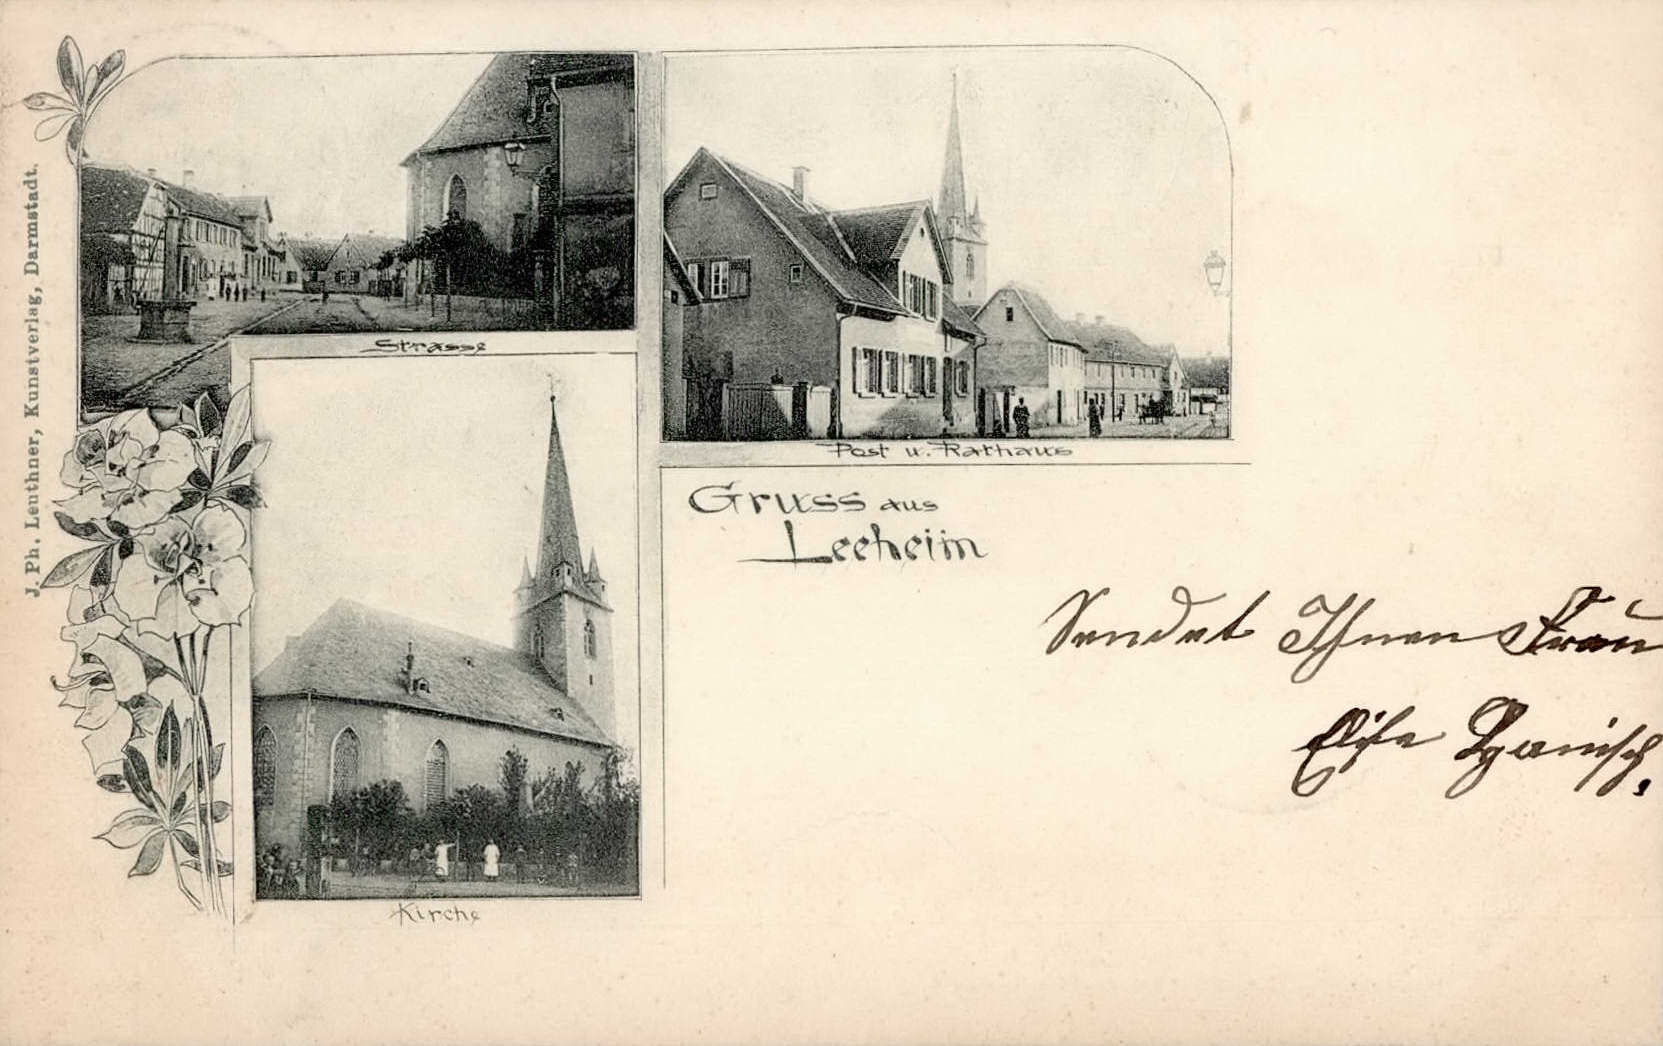 J. Ph. Leuthner, Kunstverlag, Darmstadt.
Strasse
Post u. Rathaus
Kirche
Gruss aus
Leeheim
Sendet Ihnen Frau
Elise